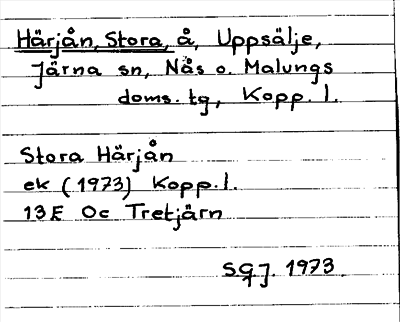 Härjån, Stora, å, Uppsälje,
Järna sn, Nås o. Malungs
doms. tg, Kopp. l.
Stora Härjån
ek (1973) Kopp. l.
13E 0c Tretjärn
SGJ. 1973.